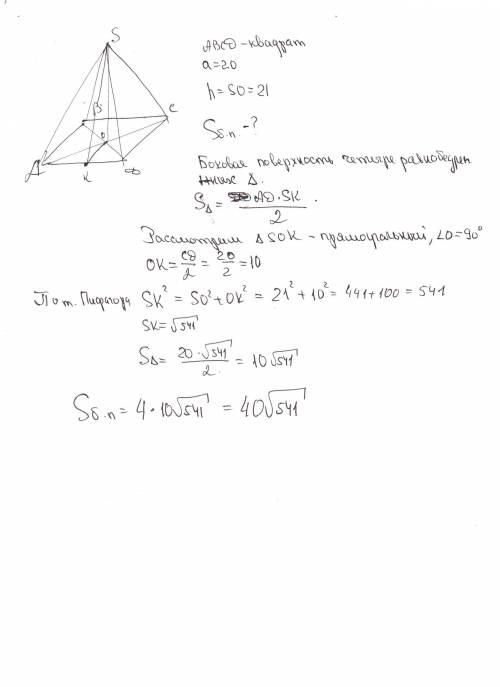 S
ABCD - квадрат
a = 20
h = SO = 21
Sб.п. - ?
B
C
O
A
K
D
Боковая поверхность четыре равнобедрен
ных Δ.
SΔ = AD·SK / 2 .
Рассмотрим Δ SOK - прямоугольный, ∠O = 90°
OK = CD/2 = 20/2 = 10
П о т. Пифагора SK² = SO² + OK² = 21² + 10² = 441 + 100 = 541
SK = √541
SΔ = 20·√541 / 2 = 10√541
Sб.п = 4·10√541 = 40√541